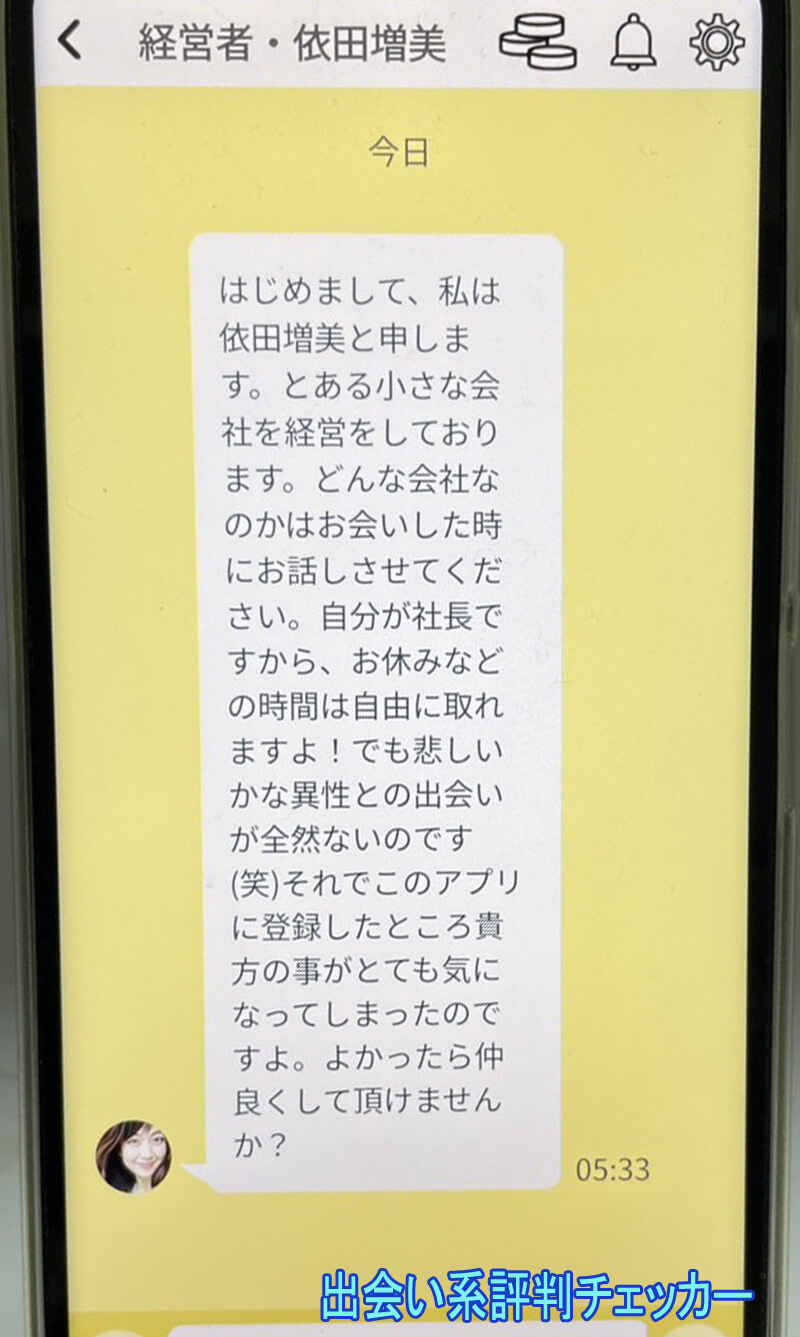 経営者・依田増美
今日
はじめまして、私は
依田増美と申しま
す。とある小さな会
社を経営をしており
ます。どんな会社な
のかはお会いした時
にお話しさせてくだ
さい。自分が社長で
すから、お休みなど
の時間は自由に取れ
ますよ！でも悲しい
かな異性との出会い
が全然ないのです
(笑)それでこのアプリ
に登録したところ貴
方の事がとても気に
なってしまったので
すよ。よかったら仲
良くして頂けません
か？
05:33
出会い系評判チェッカー